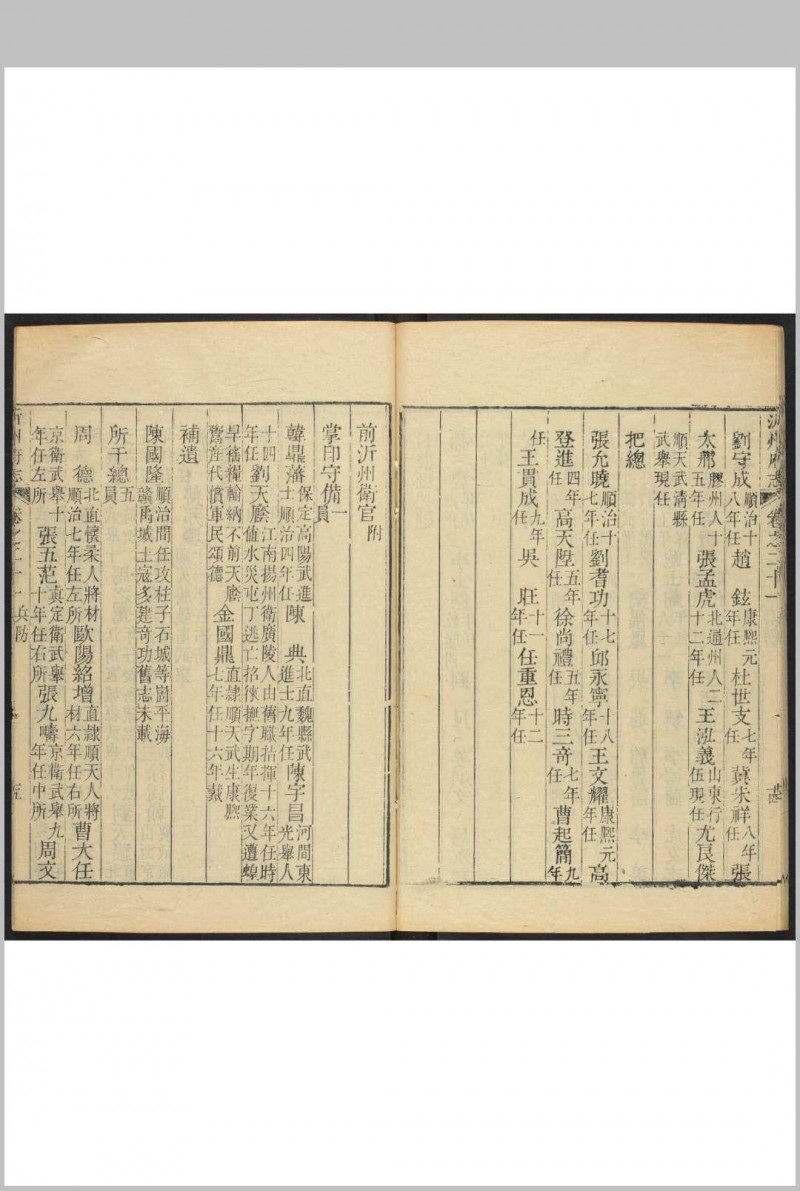 沂州府志 卷之二十一 廿四
劉守成 順治十八年任 趙鉉 康熙元年任 杜世支 七年任 冀宋祥 八年任 張
太郡 膠州人十五年任 張孟虎 北通州人二十二年任 王泓義 山東行伍現任 尤良傑
順天武淸縣武舉現任
把總
張允曉 順治十七年任 劉耆功 十七年任 邱永寧 十八年任 王文耀 康熙元年任 高
登進 四年任 高天陞 五年任 徐尚禮 五年任 時三奇 七年任 曹起簡 九年
任 王貫成 九年任 吳 旺 十一年任 任重恩 十二年任
前沂州衛官 附
掌印守備 一員
韓鼎藩 保定高陽武進士順治四年任 陳 典 北直魏縣武進士九年任 陳宇昌 河間東光舉人
十四年任 劉天麿 江南揚州衛廣陵人由舊職指揮十六年任時値水災屯丁逃亡招徠撫字期年復業又遭蝗
旱秭糧輸納不前天麿鬻產代償軍民頌德 金國鼎 直隸順天武生康熙七年任十六年裁
補遺
陳國隆 順治間任攻柱子石城等崮平海贛禹城土寇多建奇功舊志未載
所千總 五員
周 德 北直懷柔人將材順治七年任左所 歐陽紹增 直隸順天人將材六年任右所 曹大任
京衛武舉十年任左所 張五范 眞定衛武舉十年任右所 張九疇 京衛武舉九年任中所 周文
沂州府志 卷之二十一 兵防 廿五